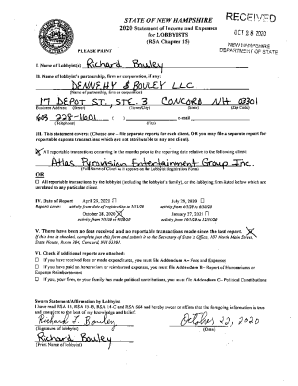 STATE OF NEW HAMPSHIRE
2020 Statement of Income and Expenses
for LOBBYISTS
(RSA Chapter 15)
RECEIVED
OCT 28 2020
NEW HAMPSHIRE
DEPARTMENT OF STATE
PLEASE PRINT
I. Name of Lobbyist(s) Richard Bouley
II. Name of lobbyist's partnership, firm or corporation, if any:
DENNEHY & BOULEY LLC
(Name of partnership, firm or corporation)
17 DEPOT ST., STE. 3 CONCORD NH 03301
Business Address (Street) (Town/City) (State) (Zip Code)
603 228-1601
(Telephone) (Fax) e-mail
III. This statement covers: (Please choose one - file separate reports for each client, OR you may file a separate report for
reportable expense transactions which are not attributable to any one client).
All reportable transactions occurring in the months prior to the reporting date relative to the following client:
Atlas Pyrovision Entertainment Group Inc.
(Full Name of Client as it appears on the Lobbyist Registration Form)
OR
All reportable transactions by the lobbyist (including the lobbyist's family), or the lobbying firm listed below which are
unrelated to any particular client.
IV. Date of Report April 29, 2020 July 29, 2020
Reports cover: activity from date of registration to 3/31/20 activity from 4/1/20 to 6/30/20
October 28, 2020 January 27, 2021
activity from 7/1/20 to 9/30/20 activity from 10/1/20 to 12/31/20
V. There have been no fees received and no reportable transactions made since the last report.
If this box is checked, complete just this form and submit it to the Secretary of State's Office, 107 North Main Street,
State House, Room 204, Concord, NH 03301.
VI. Check if additional reports are attached:
If you have received fees or made expenditures, you must file Addendum A– Fees and Expenses
If you have paid an honorarium or reimbursed expenses, you must file Addendum B– Report of Honorariums or
Expense Reimbursements
If you, your firm, or your family has made political contributions, you must file Addendum C– Political Contributions
Sworn Statement/Affirmation by Lobbyist
I have read RSA 15, RSA 15-B, RSA 14-C and RSA 664 and hereby swear or affirm that the foregoing information is true
and complete to the best of my knowledge and belief.
Richard J. Bouley October 22, 2020
(Signature of lobbyist) (Date)
Richard Bouley
(Print Name of lobbyist)